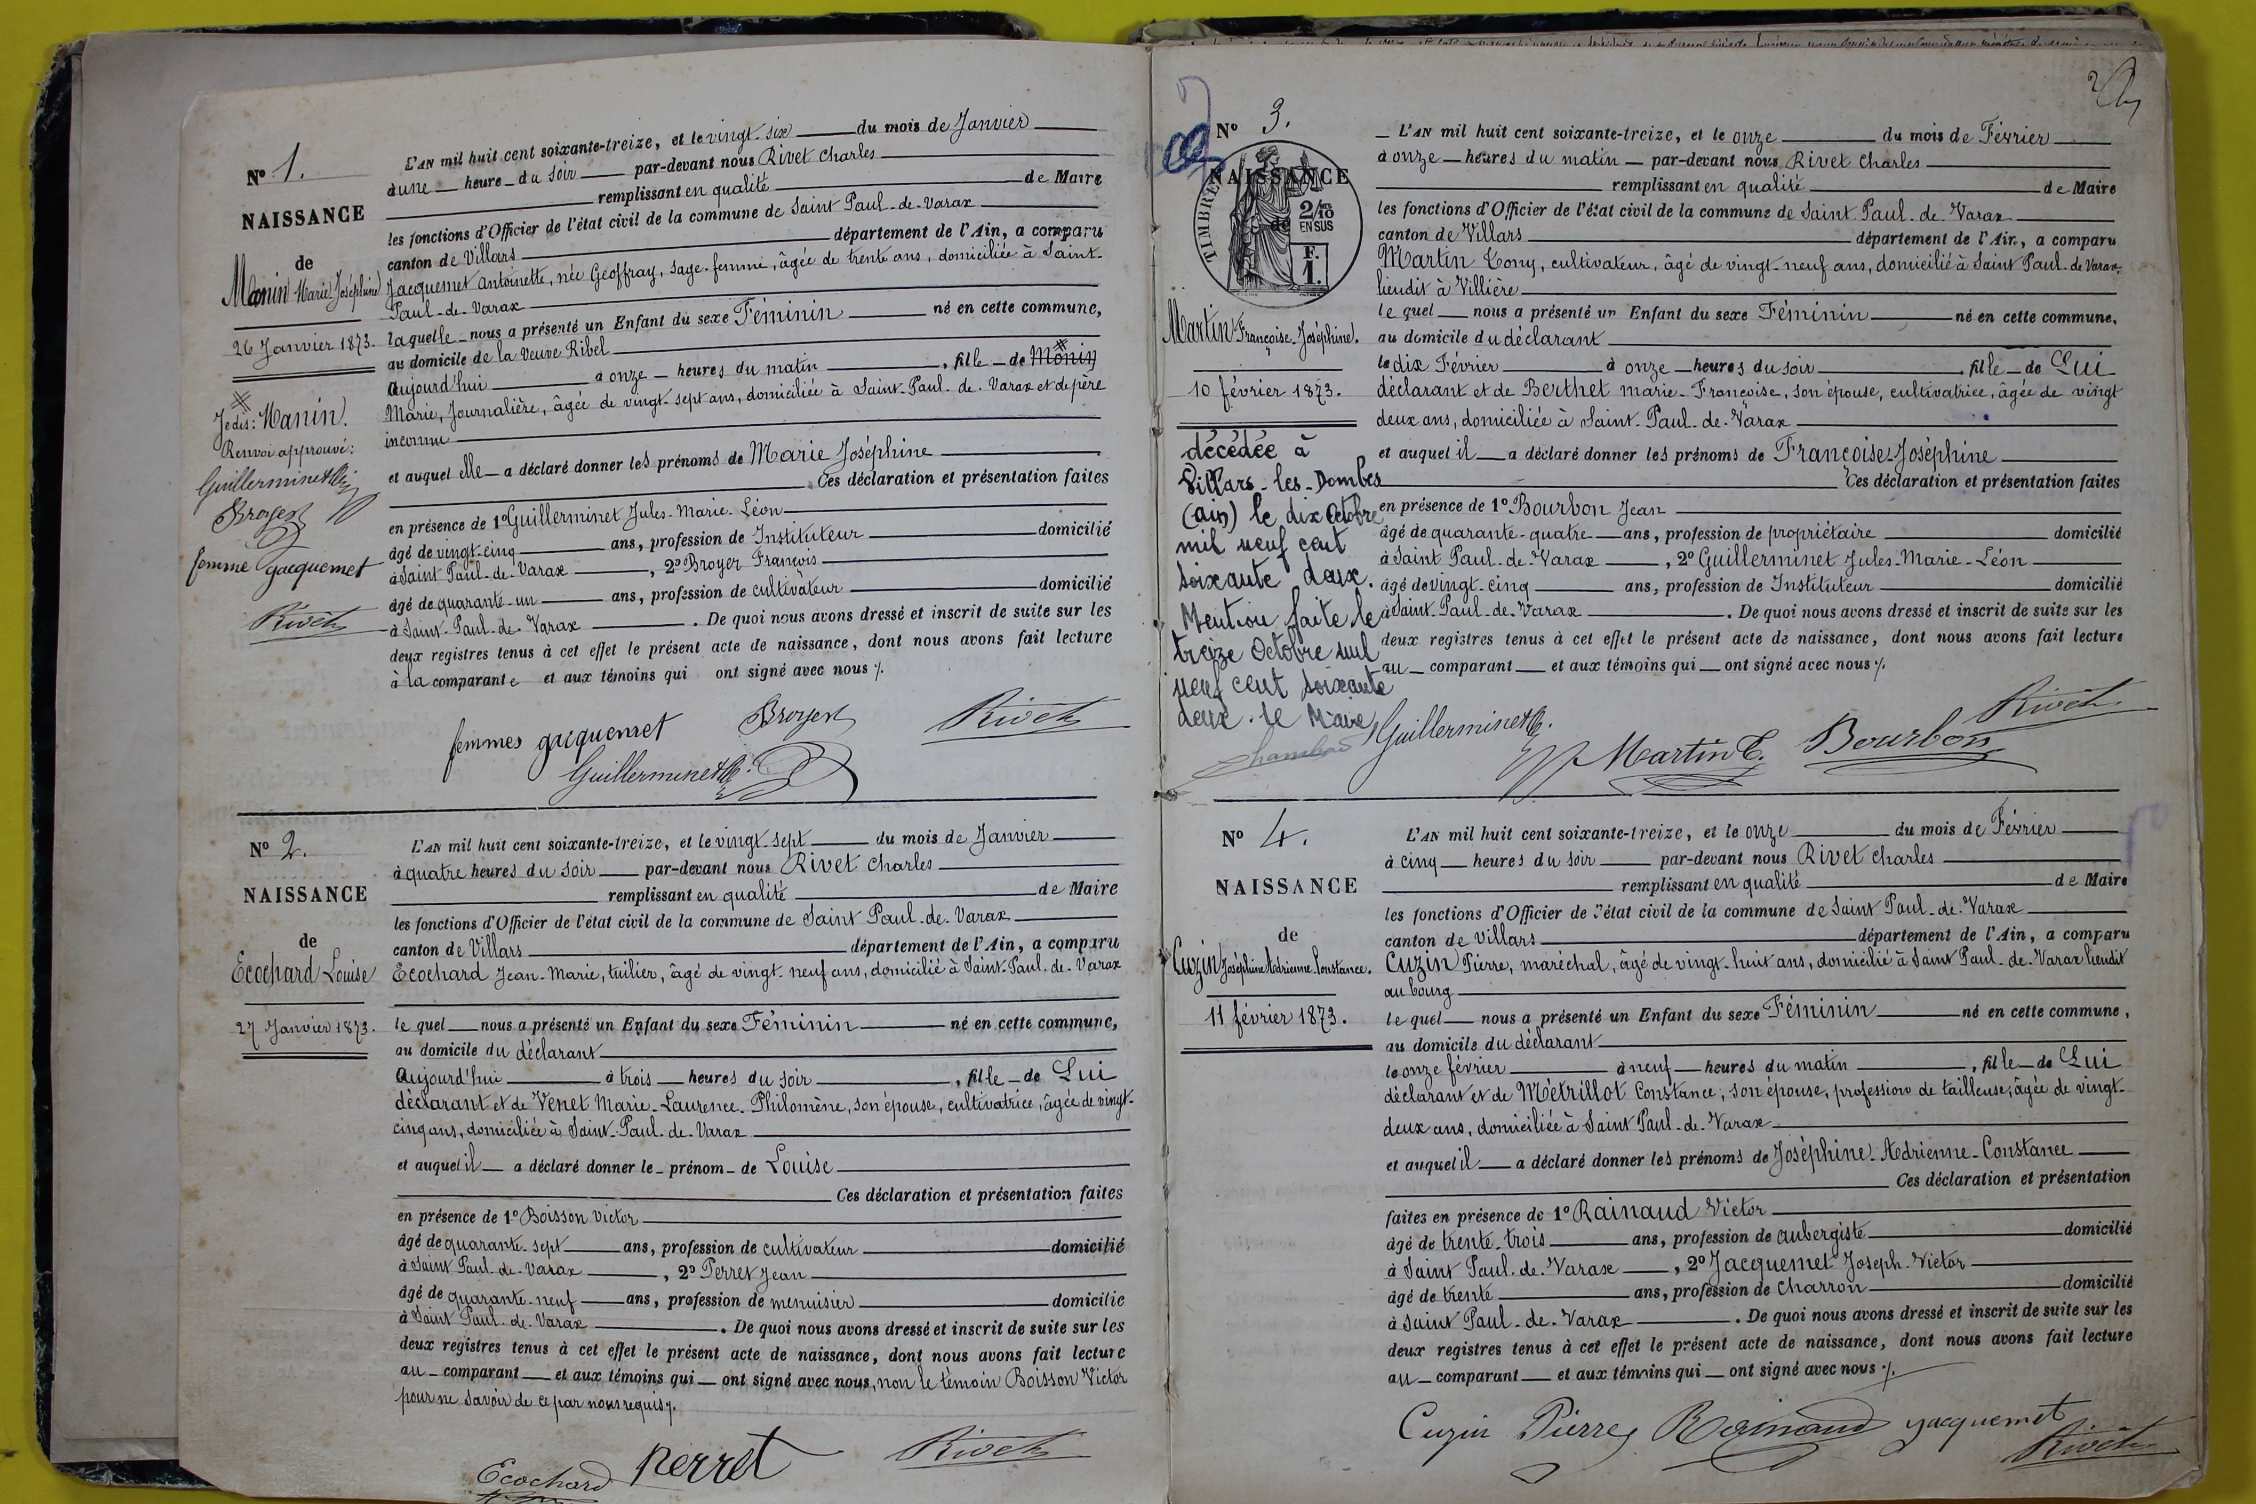 Nº 1.
NAISSANCE
de
Manin Marie Joséphine
26 Janvier 1873.
Je dis: Manin.
Renvoi approuvé:
Guillerminet
Broyer
femme gacquemet
Rivet
L'AN mil huit cent soixante-treize, et le vingt-six du mois de Janvier
à une heure du soir par-devant nous Rivet Charles
remplissant en qualité de Maire
les fonctions d'Officier de l'état civil de la commune de Saint Paul-de-Varax
canton de Villars département de l'Ain, a comparu
Jacquemet Antoinette, née Geoffray, sage-femme, âgée de trente ans, domiciliée à Saint-
Paul-de-Varax
laquelle nous a présenté un Enfant du sexe Féminin né en cette commune,
au domicile de la Veuve Ribel
aujourd'hui à onze heures du matin, fille de Monin
Marie, Journalière, âgée de vingt-sept ans, domiciliée à Saint-Paul-de-Varax et de père
inconnu
et auquel elle a déclaré donner les prénoms de Marie Joséphine
Ces déclaration et présentation faites
en présence de 1º Guillerminet Jules-Marie-Léon
âgé de vingt-cinq ans, profession de Instituteur domicilié
à Saint Paul-de-Varax, 2º Broyer François
âgé de quarante-un ans, profession de cultivateur domicilié
à Saint-Paul-de-Varax. De quoi nous avons dressé et inscrit de suite sur les
deux registres tenus à cet effet le présent acte de naissance, dont nous avons fait lecture
à la comparante et aux témoins qui ont signé avec nous ./.
femmes gacquemet Broyer Rivet
Guillerminet
Nº 2.
NAISSANCE
de
Ecochard Louise
27 Janvier 1873.
L'AN mil huit cent soixante-treize, et le vingt-sept du mois de Janvier
à quatre heures du soir par-devant nous Rivet Charles
remplissant en qualité de Maire
les fonctions d'Officier de l'état civil de la commune de Saint Paul-de-Varax
canton de Villars département de l'Ain, a comparu
Ecochard Jean-Marie, tuilier, âgé de vingt-neuf ans, domicilié à Saint-Paul-de-Varax
lequel nous a présenté un Enfant du sexe Féminin né en cette commune,
au domicile du déclarant
aujourd'hui à trois heures du soir, fille de Lui
déclarant et de Venet Marie-Laurence-Philomène, son épouse, cultivatrice, âgée de vingt-
cinq ans, domiciliée à Saint-Paul-de-Varax
et auquel il a déclaré donner le prénom de Louise
Ces déclaration et présentation faites
en présence de 1º Boisson Victor
âgé de quarante-sept ans, profession de cultivateur domicilié
à Saint Paul-de-Varax, 2º Perret Jean
âgé de quarante-neuf ans, profession de menuisier domicilié
à Saint Paul-de-Varax. De quoi nous avons dressé et inscrit de suite sur les
deux registres tenus à cet effet le présent acte de naissance, dont nous avons fait lecture
au comparant et aux témoins qui ont signé avec nous, non le témoin Boisson Victor
pour ne savoir de ce par nous requis ./.
Ecochard perret Rivet
2
Nº 3.
NAISSANCE
de
TIMBRE
2/10
EN SUS
F.
1.
Martin Françoise-Joséphine.
10 février 1873.
décédée à
Villars-les-Dombes
(ain) le dix Octobre
mil neuf cent
soixante deux.
Mention faite le
treize Octobre mil
neuf cent soixante
deux. Le Maire,
L'AN mil huit cent soixante-treize, et le onze du mois de Février
à onze heures du matin par-devant nous Rivet Charles
remplissant en qualité de Maire
les fonctions d'Officier de l'état civil de la commune de Saint Paul-de-Varax
canton de Villars département de l'Ain, a comparu
Martin Tony, cultivateur, âgé de vingt-neuf ans, domicilié à Saint Paul-de-Varax,
lieudit à Villière
lequel nous a présenté un Enfant du sexe Féminin né en cette commune,
au domicile du déclarant
le dix Février à onze heures du soir, fille de Lui
déclarant et de Berthet Marie-Françoise, son épouse, cultivatrice, âgée de vingt
deux ans, domiciliée à Saint-Paul-de-Varax
et auquel il a déclaré donner les prénoms de Françoise-Joséphine
Ces déclaration et présentation faites
en présence de 1º Bourbon Jean
âgé de quarante-quatre ans, profession de propriétaire domicilié
à Saint Paul-de-Varax, 2º Guillerminet Jules-Marie-Léon
âgé de vingt-cinq ans, profession de Instituteur domicilié
à Saint-Paul-de-Varax. De quoi nous avons dressé et inscrit de suite sur les
deux registres tenus à cet effet le présent acte de naissance, dont nous avons fait lecture
au comparant et aux témoins qui ont signé avec nous ./.
Guillerminet Martin T. Bourbon Rivet
Nº 4.
NAISSANCE
de
Cuzin Joséphine Adrienne Constance.
11 février 1873.
L'AN mil huit cent soixante-treize, et le onze du mois de Février
à cinq heures du soir par-devant nous Rivet Charles
remplissant en qualité de Maire
les fonctions d'Officier de l'état civil de la commune de Saint Paul-de-Varax
canton de Villars département de l'Ain, a comparu
Cuzin Pierre, maréchal, âgé de vingt-huit ans, domicilié à Saint Paul-de-Varax lieudit
au bourg
lequel nous a présenté un Enfant du sexe Féminin né en cette commune,
au domicile du déclarant
le onze février à neuf heures du matin, fille de Lui
déclarant et de Métrillot Constance, son épouse, profession de tailleuse, âgée de vingt-
deux ans, domiciliée à Saint Paul-de-Varax
et auquel il a déclaré donner les prénoms de Joséphine-Adrienne-Constance
Ces déclaration et présentation
faites en présence de 1º Rainaud Victor
âgé de trente-trois ans, profession de aubergiste domicilié
à Saint Paul-de-Varax, 2º Jacquemet Joseph-Victor
âgé de trente ans, profession de charron domicilié
à Saint Paul-de-Varax. De quoi nous avons dressé et inscrit de suite sur les
deux registres tenus à cet effet le présent acte de naissance, dont nous avons fait lecture
au comparant et aux témoins qui ont signé avec nous ./.
Cuzin Pierre Rainaud gacquemet
Rivet